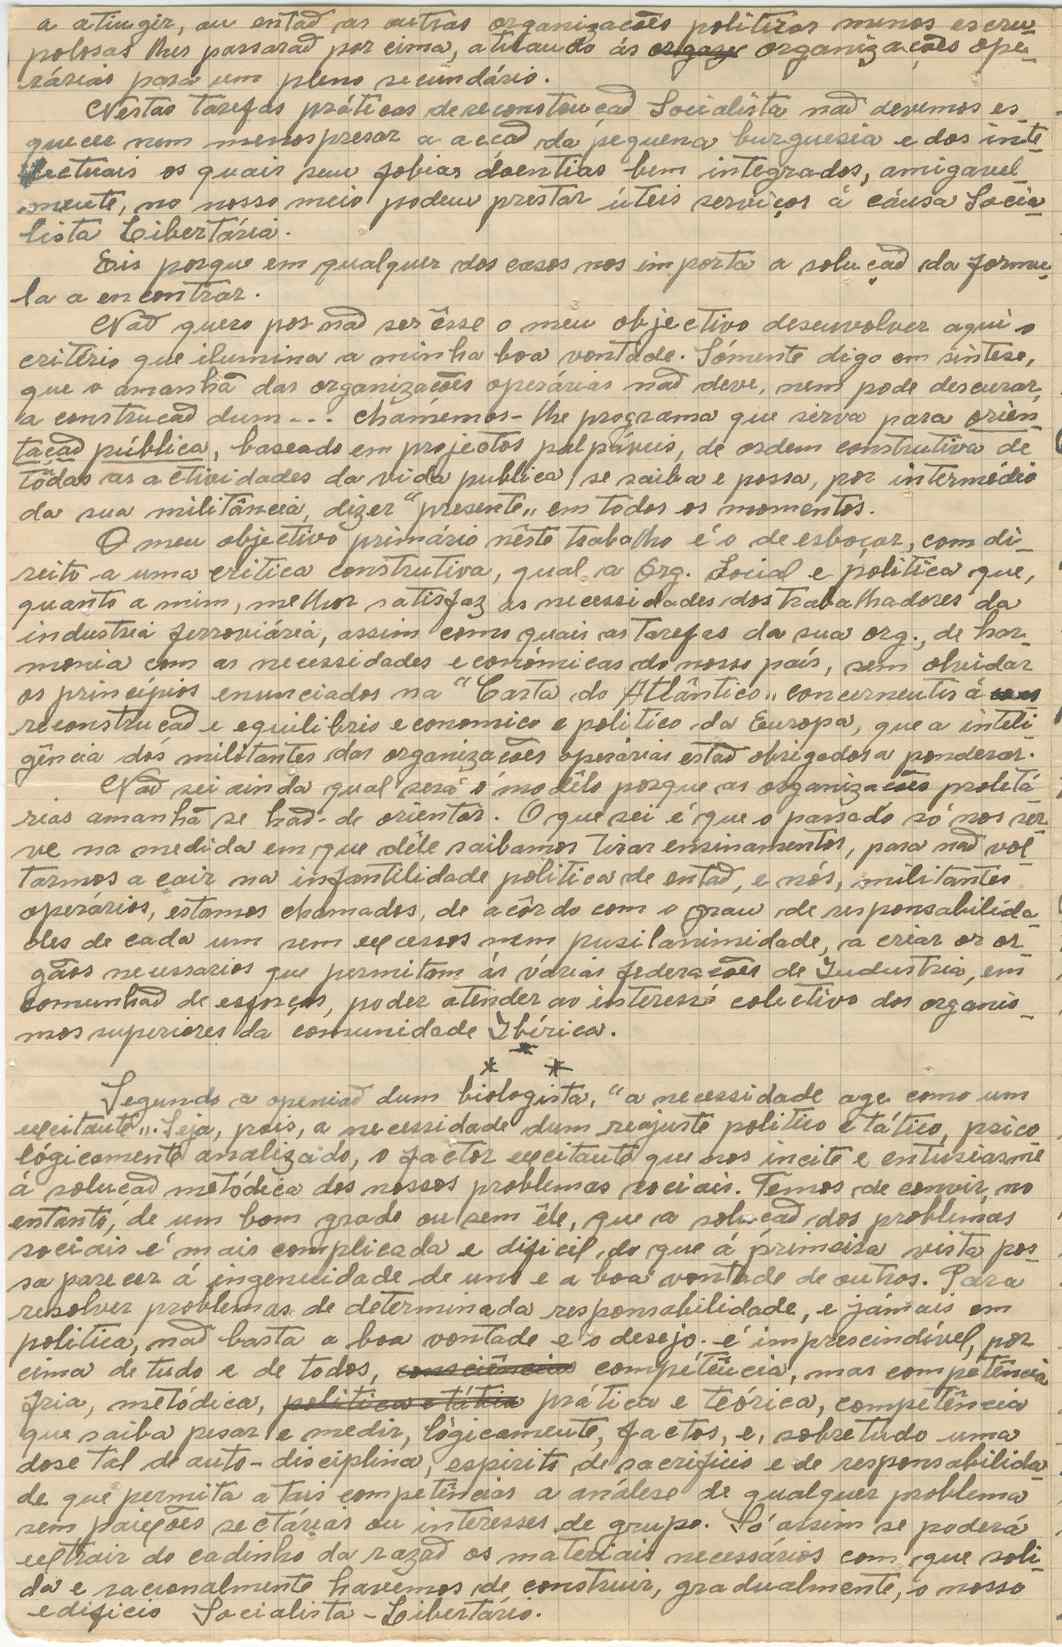 a atingir, ou entaõ as outras organizações politicas menos escru-
polosas lhes passaraõ por cima, atirando ás orgaz organizações ope-
rárias para um plano secundário.
Nestas tarefas práticas de reconstruçaõ Socialista naõ devemos es-
quecer nem menospresar a acçaõ da pequena burguesia e dos inte-
lectuais os quais sem fobias doentias bem integrados, amigavel
mente, no nosso meio podem prestar úteis serviços á cáusa Socia-
lista Libertária.
Eis porque em qualquer dos casos nos importa a soluçaõ da formu-
la a encontrar.
Naõ quero por naõ ser êsse o meu objectivo desenvolver aqui o
critério que ilumina a minha boa vontade. Sómente digo em síntese,
que o amanhã das organizações operárias naõ deve, nem pode descurar,
a construçaõ dum... chamêmos-lhe programa que sirva para orien-
taçaõ pública, baseado em projectos palpáveis, de ordem construtiva de
tôdas as actividades da vida publica, se saiba e possa, por intermédio
da sua militância, dizer "presente" em todos os momentos.
O meu objectivo primário nêste trabalho é o de esboçar, com di-
reito a uma critica construtiva, qual a Org. Social e politica que,
quanto a mim, melhor satisfaz as necessidades dos trabalhadores da
industria ferroviária, assim como quais as tarefas da sua org., de har
monia com as necessidades económicas do nosso país, sem olvidar
os princípios enunciados na "Carta do Atlântico" concernentes á
reconstruçaõ e equilibrio economico e politico da Europa, que a inteli-
gência dos militantes das organizações operárias estaõ obrigados a ponderar.
Naõ sei ainda qual será o modêlo porque as organizações proletá
rias amanhã se haõ-de orientar. O que sei é que o passado só nos ser-
ve na medida em que dêle saibamos tirar ensinamentos, para naõ vol
tarmos a cair na infantilidade politica de entaõ, e nós, militantes
operários, estamos chamados, de acôrdo com o grau de responsabilida-
des de cada um sem excessos nem pusilanimidade, a criar os or-
gãos necessarios que permitam ás várias federações de Industria, em
comunhaõ de esforços, poder atender ao interesse colectivo dos organis-
mos superiores da comunidade Ibérica.
* * *
Segundo a openiaõ dum biologista, "a necessidade age como um
excitante". Seja, pois, a necessidade dum reajuste politico e tático, psico
lógicamente analizado, o factor excitante que nos incite e entusiasme
á soluçaõ metódica dos nossos problemas sociais. Temos de convir, no
entanto, de um bom grado ou sem êle, que a soluçaõ dos problemas
sociais é mais complicada e dificil do que á primeira vista pos-
sa parecer á ingenuidade de uns e a boa vontade de outros. Para
resolver problemas de determinada responsabilidade, e jámais em
politica, naõ basta a boa vontade e o desejo. é imprescindível, por
cima de tudo e de todos, consciências compétência, mas competência
fria, metódica, politica e tática prática e teórica, competência
que saiba pesar e medir, lógicamente, factos, e, sobretudo uma
dose tal de auto-disciplina, espirito de sacrificio e de responsabilida-
de que permita a tais competências a análese de qualquer problema
sem paixões sectárias ou interesses de grupo. Só assim se poderá
extrair do cadinho da razaõ os materiais necessários com que soli-
da e racionalmente havemos de construir, gradualmente, o nosso
edificio Socialista-Libertário.